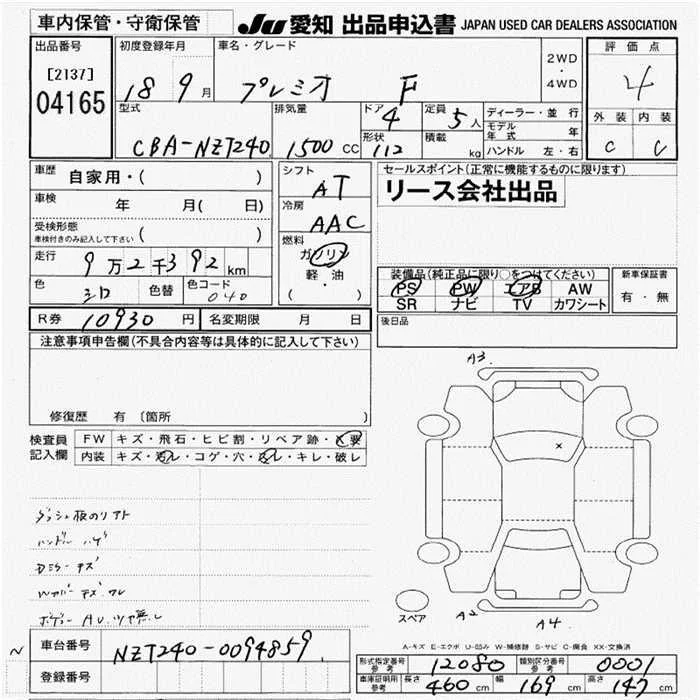 車内保管・守衛保管
JU 愛知 出品申込書 JAPAN USED CAR DEALERS ASSOCIATION
出品番号
[2137]
04165
初度登録年月
18 9月
車名・グレード
プレミオ F
2WD
・
4WD
評価点
4
外装 内装
C C
型式
CBA-NZT240
排気量
1500 CC
ドア
4
形状
112
定員
5人
積載
kg
ディーラー・並行
モデル年式 年
ハンドル 左・右
車歴
自家用・( )
車検
年 月( 日)
受検形態
車検付きのみ記入して下さい ( )
走行
9万2千392km
色
シロ
色替
色コード
040
シフト
AT
冷房
AAC
燃料
ガソリン
軽・油
( ・ )
セールスポイント(正常に機能するものに限ります)
リース会社出品
装備品(純正品に限り○をつけてください)
PS PW エアB AW
SR ナビ TV カワシート
新車保証書
有・無
R券 10930円
名変期限 月 日
後日品
注意事項申告欄(不具合内容等は具体的に記入して下さい)
修復歴 有 〔箇所 〕
検査員
記入欄
FW キズ・飛石・ヒビ割・リペア跡・X要
内装 キズ・汚レ・コゲ・穴・スレ・キレ・破レ
ダッシュ板のリアト
ハンドル ハゲ
Dミラーキズ
Wカバーキズ・ワレ
ボデーAU、ツヤ無し
A3
×
A2
A4
スペア
A-キズ E-エクボ U-凹み W-補修跡 S-サビ C-腐食 XX-交換済
~
車台番号
NZT240-0094859
登録番号
型式指定番号
参考
12080
類別区分番号
参考
0001
車庫証明用
参考
長さ 460cm
幅 169cm
高さ 147cm